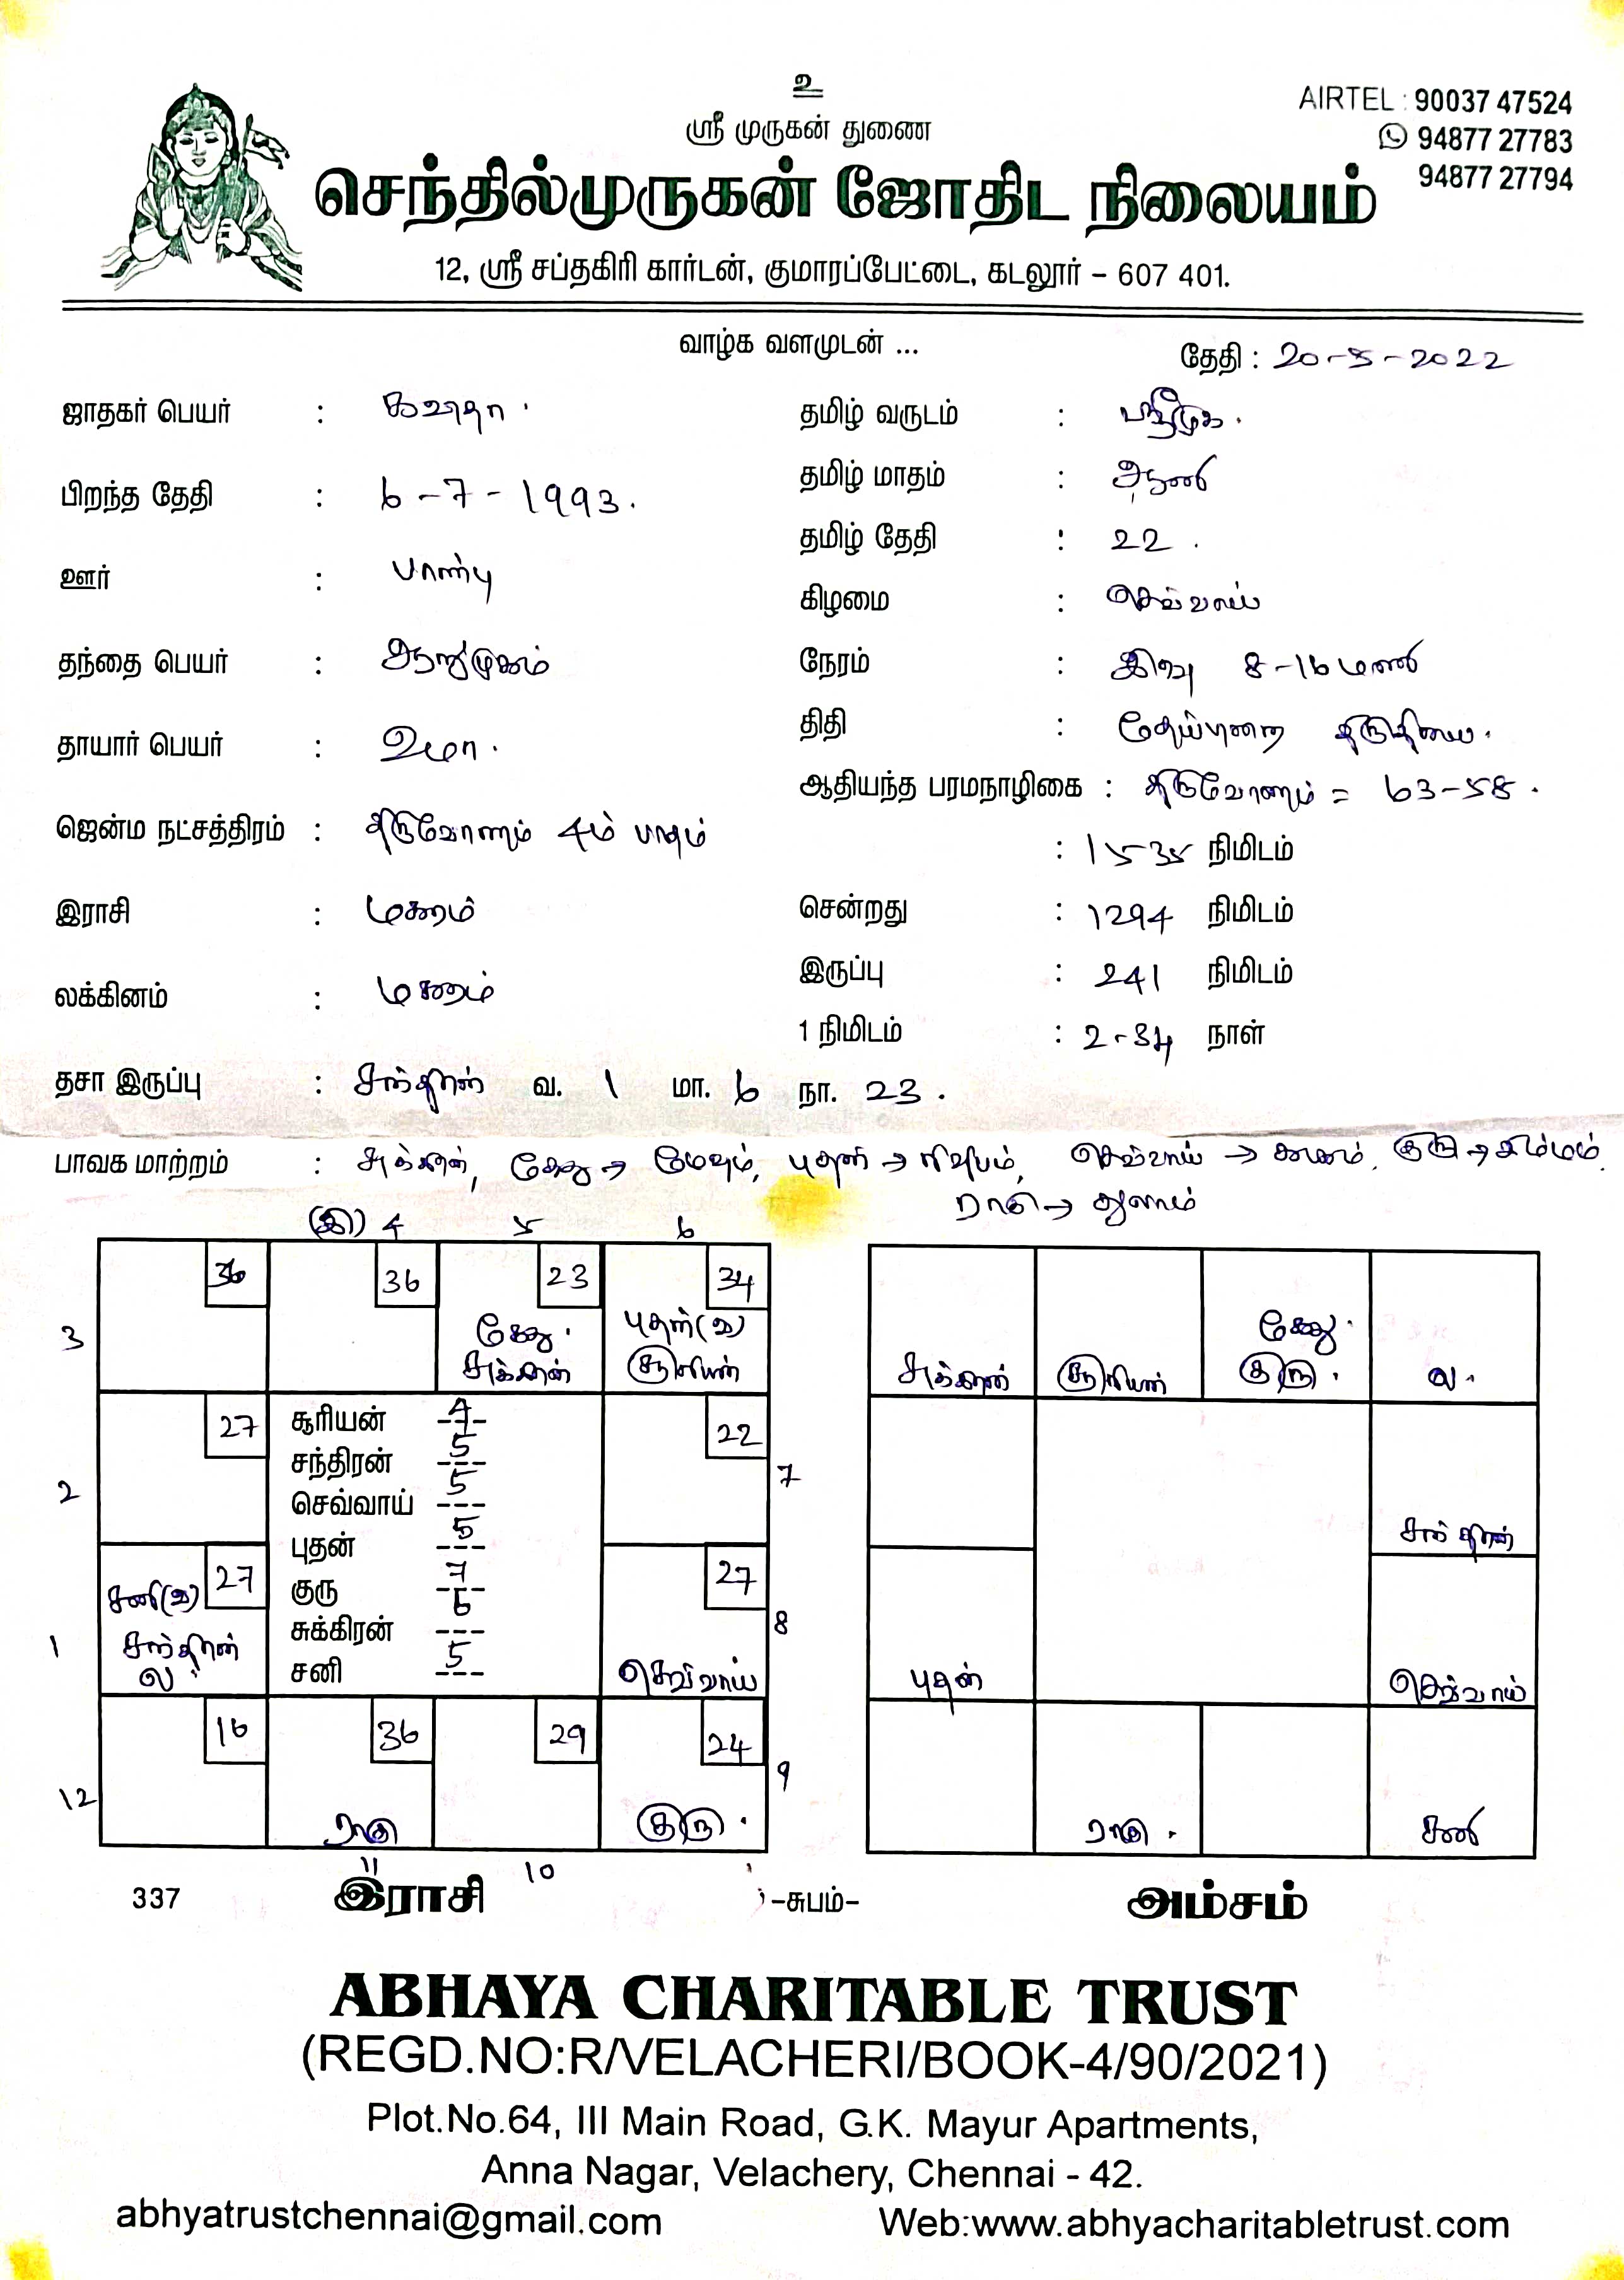 உ
ஸ்ரீ முருகன் துணை
AIRTEL : 90037 47524
94877 27783
94877 27794
செந்தில்முருகன் ஜோதிட நிலையம்
12, ஸ்ரீ சப்தகிரி கார்டன், குமாரப்பேட்டை, கடலூர் – 607 401.
வாழ்க வளமுடன் ...
தேதி : 20-5-2022
ஜாதகர் பெயர் : கவிதா.
தமிழ் வருடம் : ஸ்ரீமுக.
பிறந்த தேதி : 6-7-1993.
தமிழ் மாதம் : ஆனி
தமிழ் தேதி : 22.
ஊர் :
கிழமை : செவ்வாய்
தந்தை பெயர் : ஆறுமுகம்
நேரம் : இரவு 8-16 மணி
தாயார் பெயர் : உமா.
திதி : தேய்பிறை திருதியை.
ஆதியந்த பரமநாழிகை : திருவோணம் = 63-58.
: 1535 நிமிடம்
ஜென்ம நட்சத்திரம் : திருவோணம் 4ம் பாதம்
சென்றது : 1294 நிமிடம்
இராசி : மகரம்
இருப்பு : 241 நிமிடம்
லக்கினம் : மகரம்
1 நிமிடம் : 2-34 நாள்
தசா இருப்பு : சந்திரன் வ. 1 மா. 6 நா. 23.
பாவக மாற்றம் : சுக்கிரன், கேது → மேஷம், புதன் → ரிஷபம், செவ்வாய் → கடகம், குரு → சிம்மம்,
ராகு → துலாம்
(இ) 4 5 6
36 36 23 34
3 கேது. புதன்(வ)
சுக்கிரன் சூரியன்
சுக்கிரன் சூரியன் கேது. குரு. ல.
27 22
2 7
சூரியன் 4
சந்திரன் 5
செவ்வாய் 5
புதன் 5
குரு 7
சுக்கிரன் 6
சனி 5
சந்திரன்
சனி(வ) 27 27
1 சந்திரன் 8
ல செவ்வாய்
புதன் செவ்வாய்
16 36 29 24
12 9
ராகு குரு.
ராகு. சனி
11 10
337 இராசி -சுபம்- அம்சம்
ABHAYA CHARITABLE TRUST
(REGD.NO:R/VELACHERI/BOOK-4/90/2021)
Plot.No.64, III Main Road, G.K. Mayur Apartments,
Anna Nagar, Velachery, Chennai - 42.
abhyatrustchennai@gmail.com Web:www.abhyacharitabletrust.com